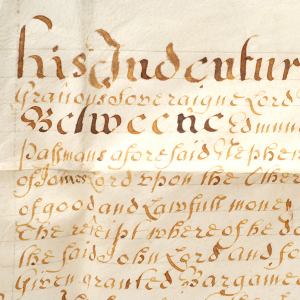 his Indentur
Gratious Soveraigne Lord
Betweene Edmun
Passmans aforesaid Stephen
of James Lord upon the Other
of good and Lawfull money
The receipt whereof he do
the said John Lord and fo
Given granted Bargame